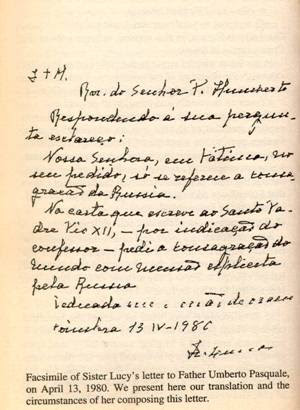 J + M.
Rev. do Senhor P. Humberto
Respondendo á sua pergun-
ta esclareço:
Nossa Senhora, em Fátima, no
seu pedido, só se referia a consa-
gração da Russia.
Na carta que escrevi ao Santo Pa-
dre Pio XII, – por indicação do
confessor – pedi a consagração do
mundo com menção explicita
pela Russia
Dedicada
Coimbra 13 IV – 1980
Ir. Lucia
Facsimile of Sister Lucy's letter to Father Umberto Pasquale,
on April 13, 1980. We present here our translation and the
circumstances of her composing this letter.